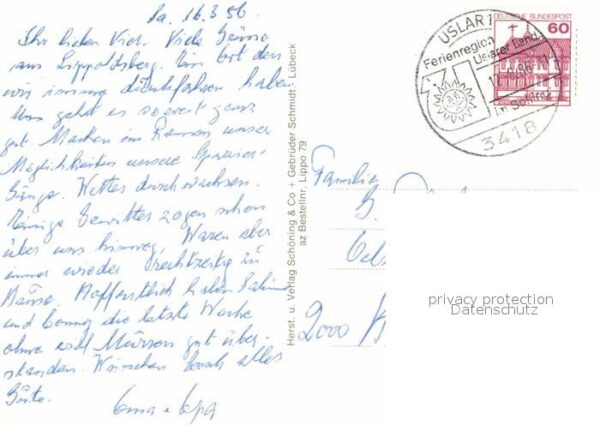 Sa. 16.8.86
Ihr lieben Vier. Viele Grüße
aus Lippoldsberg. Ein Ort den
wir immer durchfahren haben
Uns geht es soweit ganz
gut. Machen im Rahmen unser
Möglichkeiten unsere Spazier-
Gänge. Wetter durchwachsen.
Einige Gewitter zogen schon
über uns hinweg. Waren aber
immer wieder Rechtzeitig in
Hause. Hoffentlich haben
und die letzte Woche
ohne viel gut über-
standen. Wünschen Euch alles
Gute.
Oma + Opa
Herst. u. Verlag Schöning & Co + Gebrüder Schmidt · Lübeck
az Bestellnr. Lippo 79
USLAR 1
Ferienregion
Uslarer Land
im Solling
3418
DEUTSCHE BUNDESPOST
60
Familie
2000
privacy protection
Datenschutz